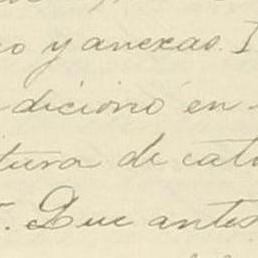 y anexas. I
dicionó en
tura de cat
. Que antes